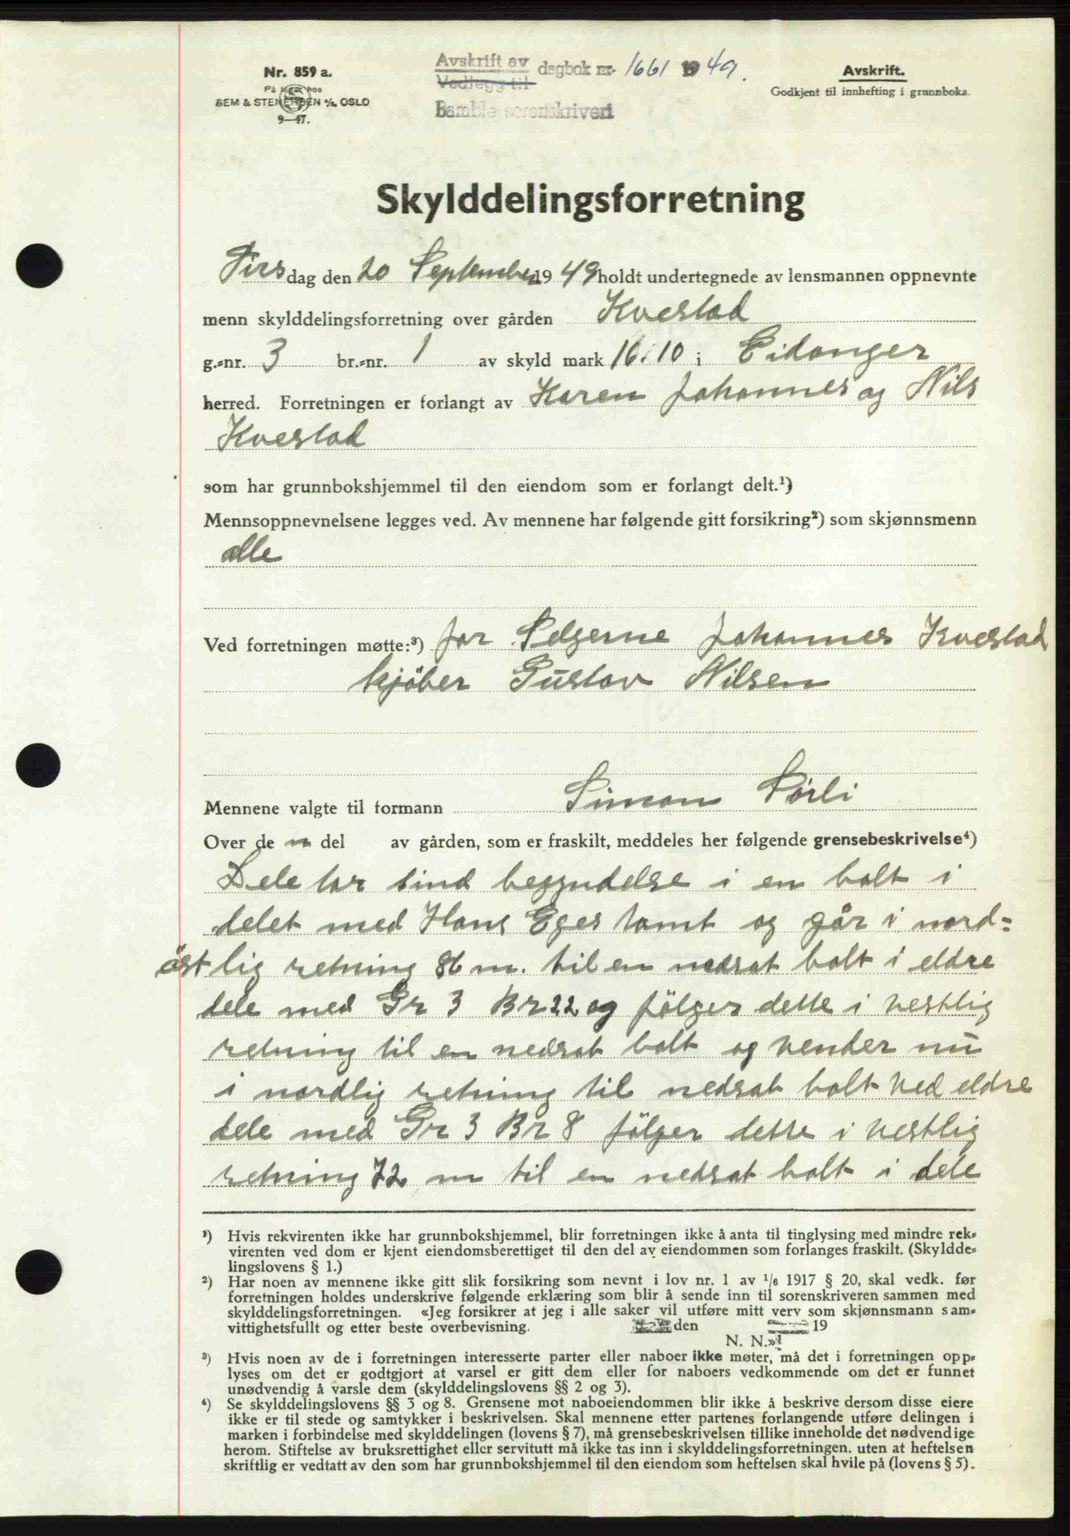 Nr. 859 a.
På lager hos
SEM & STENERSEN A/S, OSLO
9—47.
Avskrift av
Vedlegg til
dagbok nr. 1661 1949.
Bamble sorenskriveri
Avskrift.
Godkjent til innhefting i grunnboka.
Skylddelingsforretning
Tirsdag den 20 September 1949 holdt undertegnede av lensmannen oppnevnte
menn skylddelingsforretning over gården Kvestad
g.-nr. 3 br.-nr. 1 av skyld mark 16.10 i Eidanger
herred. Forretningen er forlangt av Karen Johannes og Nils
Kvestad
som har grunnbokshjemmel til den eiendom som er forlangt delt.¹)
Mennsoppnevnelsene legges ved. Av mennene har følgende gitt forsikring²) som skjønnsmenn
alle
Ved forretningen møtte:³) for Selgerne Johannes Kvestad
kjöber Gustav Nilsen
Mennene valgte til formann Simon Sörli
Over de n del av gården, som er fraskilt, meddeles her følgende grensebeskrivelse⁴)
Dele tar sind begyndelse i en bolt i
delet med Hans Eges tomt og går i nord-
östlig retning 86 m. til en nedsat bolt i eldre
dele med Gr 3 Br 22 og fölger dette i vestlig
retning til en nedsat bolt og vender nu
i nordlig retning til nedsat bolt ved eldre
dele med Gr 3 Br 8 fölger dette i vestlig
retning 72 m til en nedsat bolt i dele
¹) Hvis rekvirenten ikke har grunnbokshjemmel, blir forretningen ikke å anta til tinglysing med mindre rek-
virenten ved dom er kjent eiendomsberettiget til den del av eiendommen som forlanges fraskilt. (Skyldde-
lingslovens § 1.)
²) Har noen av mennene ikke gitt slik forsikring som nevnt i lov nr. 1 av 1/6 1917 § 20, skal vedk. før
forretningen holdes underskrive følgende erklæring som blir å sende inn til sorenskriveren sammen med
skylddelingsforretningen. «Jeg forsikrer at jeg i alle saker vil utføre mitt verv som skjønnsmann sam-
vittighetsfullt og etter beste overbevisning. den 19
N. N.»
³) Hvis noen av de i forretningen interesserte parter eller naboer ikke møter, må det i forretningen opp-
lyses om det er godtgjort at varsel er gitt dem eller for naboers vedkommende om det er funnet
unødvendig å varsle dem (skylddelingslovens §§ 2 og 3).
⁴) Se skylddelingslovens §§ 3 og 8. Grensene mot naboeiendommen blir ikke å beskrive dersom disse eiere
ikke er til stede og samtykker i beskrivelsen. Skal mennene etter partenes forlangende utføre delingen i
marken i forbindelse med skylddelingen (lovens § 7), må grensebeskrivelsen tillike inneholde det nødvendige
herom. Stiftelse av bruksrettighet eller servitutt må ikke tas inn i skylddelingsforretningen, uten at heftelsen
skriftlig er vedtatt av den som har grunnbokshjemmel til den eiendom som heftelsen skal hvile på (lovens § 5).